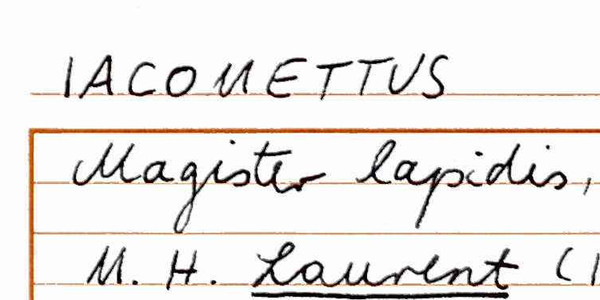 IACOMETTUS
Magister lapidis,
M. H. Laurent (